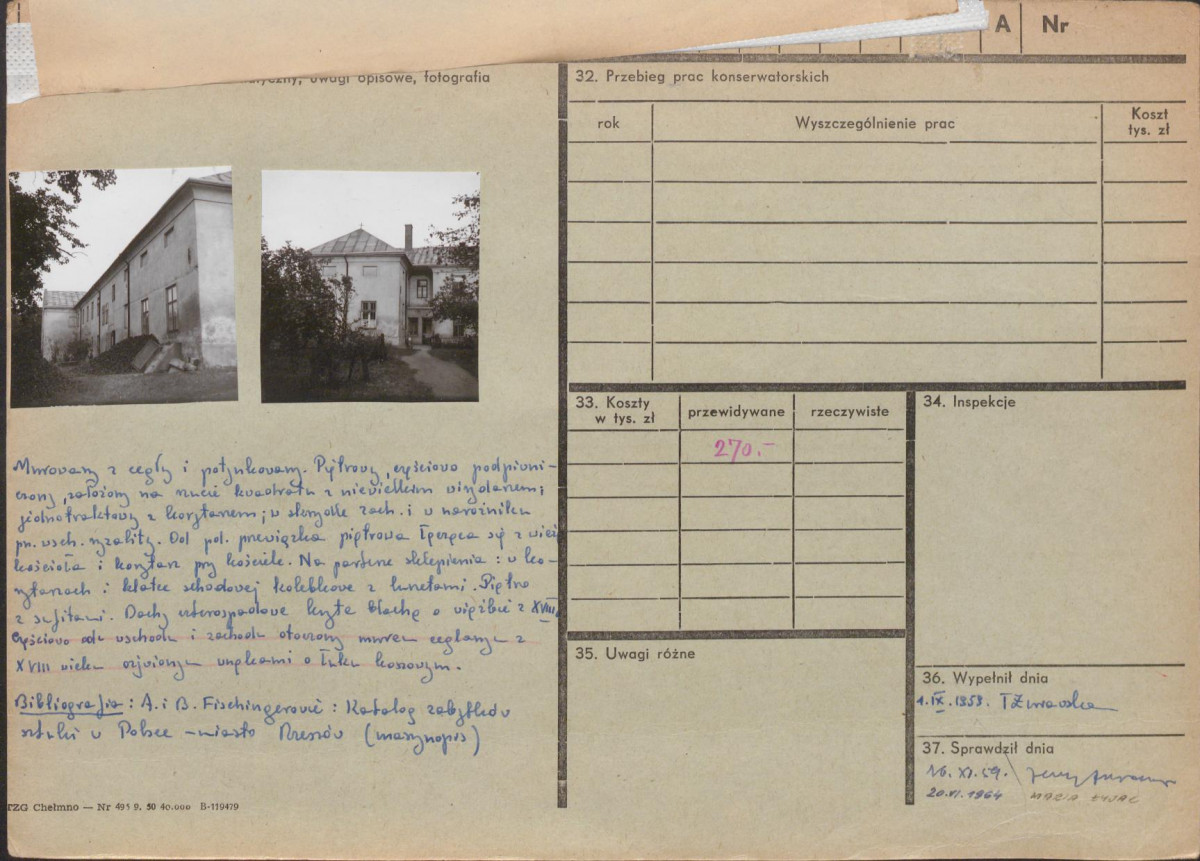 A Nr
uwagi opisowe, fotografia
Murowany z cegły i potynkowany. Piętrowy, częściowo podpiwni-
czony, założony na rzucie kwadratu z niewielkim wirydarzem;
jednotraktowy z korytarzem; w skrzydle zach. i w narożniku
pn. wsch. ryzality. Od pd. przewiązka piętrowa łącząca się z wieżą
kościoła i korytarz przy kościele. Na parterze sklepienia: w ko-
rytarzach i klatce schodowej kolebkowe z lunetami. Piętro
z sufitami. Dachy czterospadowe kryte blachą o więźbie z XVIII
Częściowo od wschodu i zachodu otoczony murem ceglanym z
XVIII wieku ożywionym wnękami o łuku koszowym.
Bibliografia: A. i B. Fischingerowie: Katalog zabytków
sztuki w Polsce - miasto Rzeszów (maszynopis)
TZG Chełmno — Nr 495 9. 50 40.000 B-119479
32. Przebieg prac konserwatorskich
rok Wyszczególnienie prac Koszt
tys. zł
33. Koszty
w tys. zł
przewidywane rzeczywiste
270.-
34. Inspekcje
35. Uwagi różne
36. Wypełnił dnia
1.IX.1959.
37. Sprawdził dnia
16.XI.59. Jerzy
20.VI.1964 MARIA